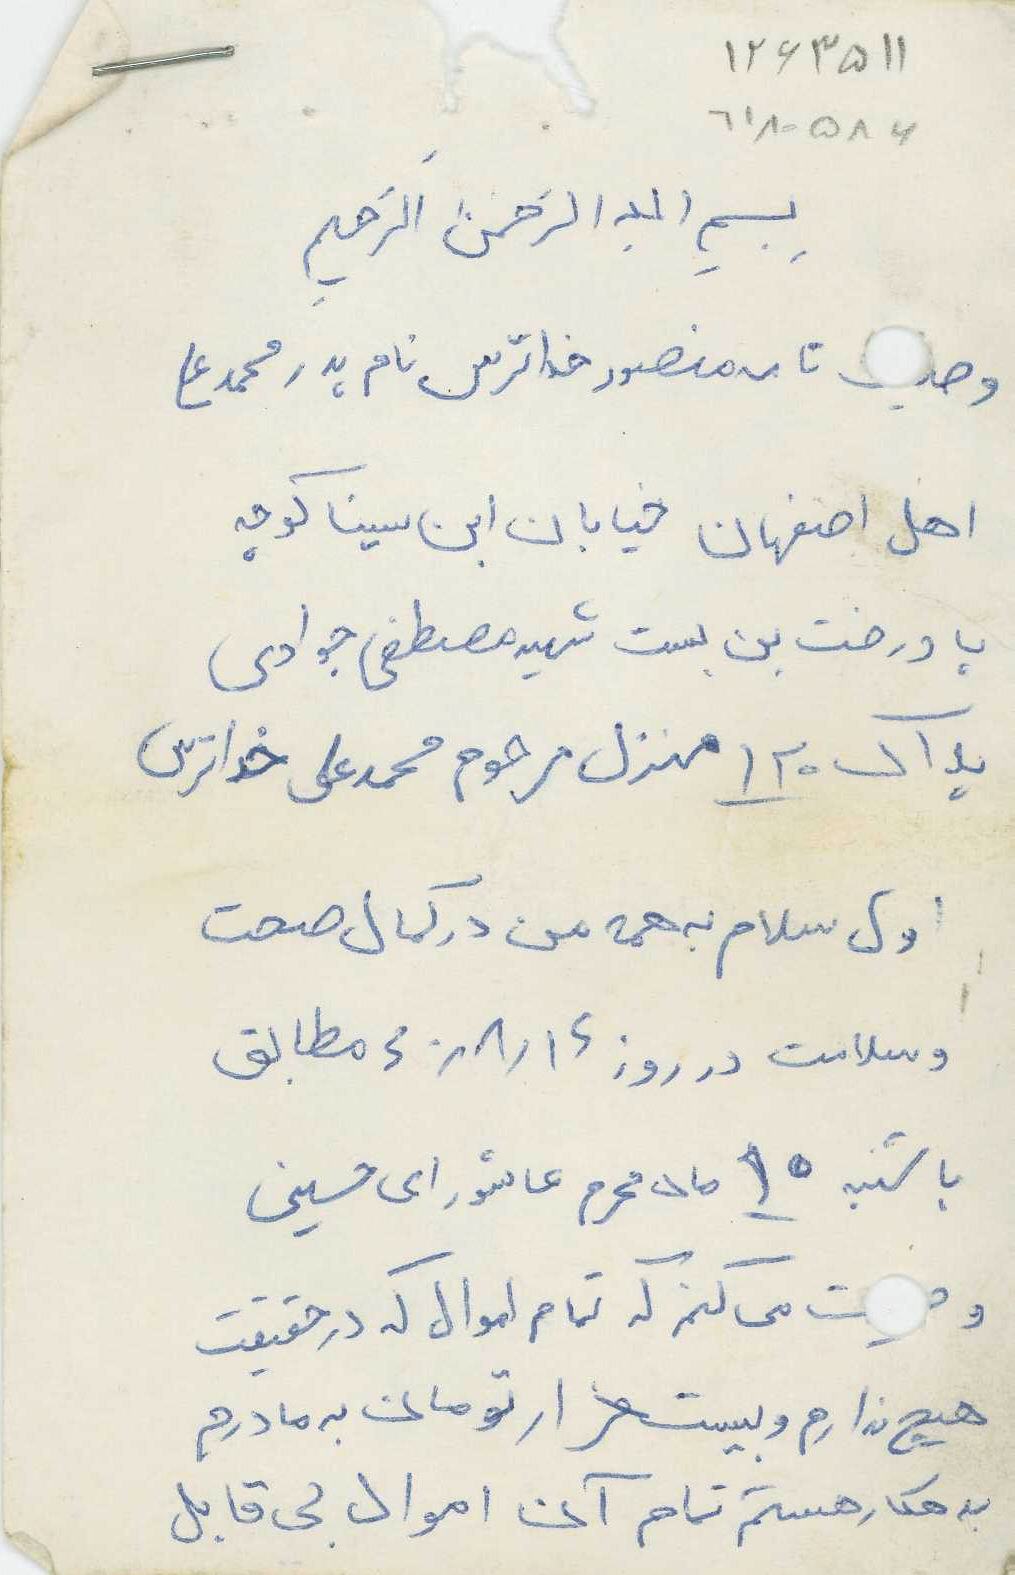 ۱۲۶۳۵۱۱
۶۱۸۰۵۸۶
بِسمِ الله الرَحمنِ الَرَحیمِ
وصیت نامه منصور خداترس نام پدر محمد علی
اهل اصفهان خیابان ابن سینا کوچه
پا درخت بن بست شهید مصطفی جوادی
پلاک ۱۳۰ منزل مرحوم محمد علی خداترس
اول سلام به همه من در کمال صحت
و سلامت در روز مطابق
با شنبه ۱۰ ماه محرم عاشورای حسینی
وصیت می کنم که تمام اموال که در حقیقت
هیچ ندارم و بیست هزار تومان به مادرم
بدهکار هستم تمام آن اموال بی قابل